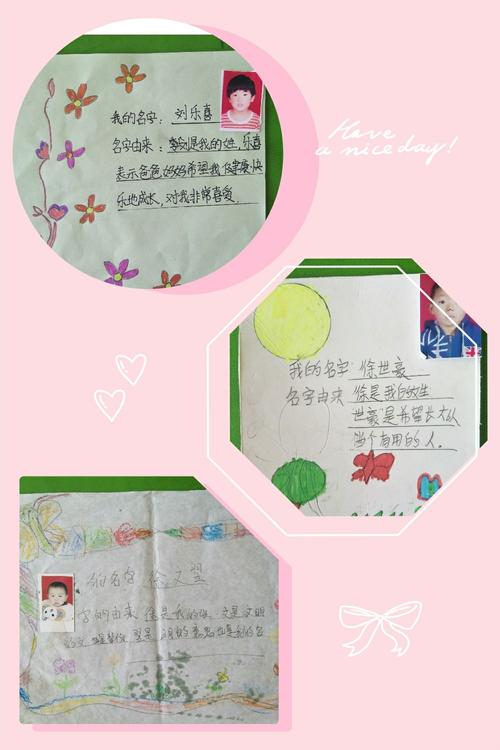 我的名字：刘乐喜
名字由来：刘是我的姓，乐喜
表示爸爸妈妈希望我健康快
乐地成长，对我非常喜爱。
Have
a nice day!
我的名字 徐世豪
名字由来 徐是我的姓
世豪是希望长大以
当个有用的人。
的名字 徐文翌
字的由来 徐是我的姓，文是文明
的文